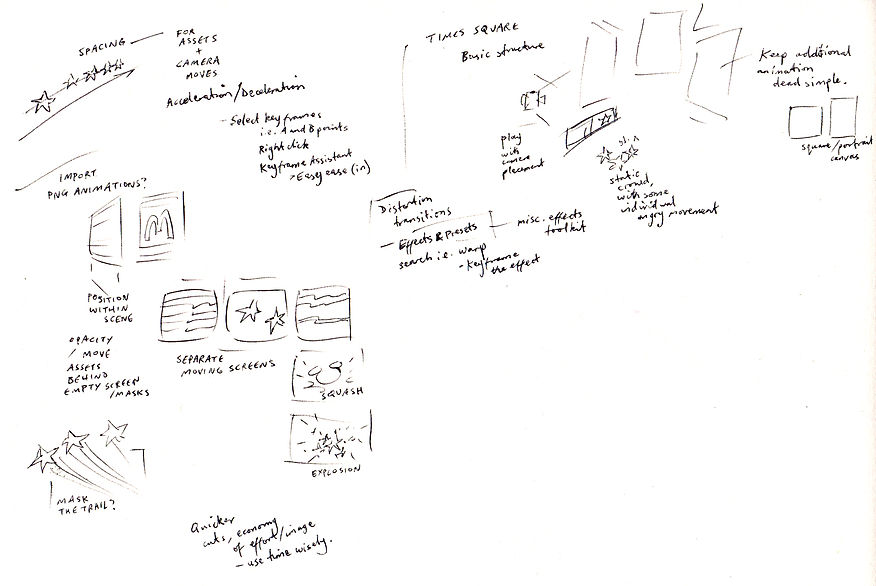 SPACING
FOR
ASSETS
+
CAMERA
MOVES
Acceleration/Deceleration
- Select keyframes
i.e. A and B points
Right click
Keyframe Assistant
> Easy ease (in)
IMPORT
PNG ANIMATIONS?
POSITION
WITHIN
SCENE
OPACITY
/ MOVE
ASSETS
BEHIND
EMPTY SCREEN
/MASKS
SEPARATE
MOVING SCREENS
SQUASH
EXPLOSION
MASK
THE TRAIL?
Quicker
cuts, economy
of effort/image
- use time wisely.
TIMES SQUARE
Basic structure
play
with
camera
placement
static
crowd,
with some
individual
angry movement
Keep additional
animation
dead simple.
square/portrait
canvas
Distortion
transitions
- Effects & Presets
search i.e. warp
- Keyframe
the effect
misc. effects
toolkit